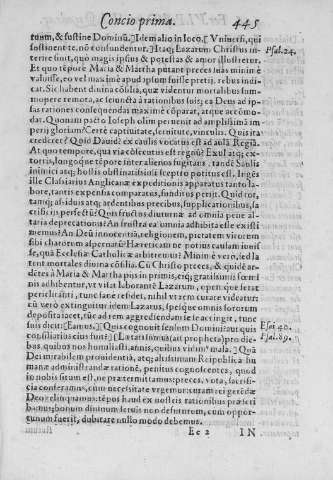 Concio prima. 445
tum, & sustine Dominũ.] Idem alio in loco. [Vniversi, qui
sustinent te, nõ confundentur.] Itaq; Lazarum Christus in-
terire sinit, quo magis ipsius & potestas & amor illustretur. Psal. 24.
Et quo tẽpore Maria & Martha putant preces suas minimè
valuisse, eo vel maximè apud ipsum fuisse pretij, rebus indi-
cat. Sic habent divina cõsilia, quæ videntur mortalibus sum-
mopere remota, ac sejuncta à rationibus suis; ea Deus ad ip-
sas rationes consequendas maximè cõparat, atque accõmo-
dat. Quonam pacto Ioseph olim pervenit ad amplissimã im-
perij gloriam? Certè captivitate, servitute, vinculis. Quis ita
crederet? Quid David? ex caulis vectus est ad aula Regiã.
At quo tempore, qua via cõsecutus est regnũ? Exul atq; ex-
torris, longoque tẽpore inter alienos fugitans, tandẽ Saulis
inimici atq; hostis obstinatissimi sceptro potitus est. Ingẽs
ille Classiarius Anglicanæ expeditionis apparatus tanto la-
bore, tantis expensis comparatus, funditus perijt. Quid tot,
tamq; assiduis atq; ardentibus precibus, supplicationibus, sa-
crificijs perfectũ? Quis fructus diuturnæ ad omnia penè al-
taria deprecationis? An frustra ea omnia adhibita esse existi-
memus? An Deũ innocentiã, religionem, pietatem virorum
sibi charorum aspernari? Hæreticam ne potius causam iovis-
se, quã Ecclesiæ Catholicæ arbitremur? Minimè vero, sed la
tent mortales divina cõsilia. Cũ Christo preces, & quidẽ ar-
dẽtes à Maria & Martha pijssimis primis, atq; gratissimis fœmi-
nis adhibentur, vt visat laborantẽ Lazarum, opem que ferat
periclitanti, tunc sanè resedet, nihil vt eam curare videatur:
cũ verò extinguitur idem Lazarus, ipseque omnis sororum
deposita jacet, tũc ad rem aggrediendam sese accingit, tunc
suis dicit: [Eamus.] Quis cognovit sensum Domini? aut quis Esai. 40.
consiliarius eius fuit? [Lætati sumus (ait propheta) pro die- Psal. 89.
bus. quibus nos humiliasti, annis, quibus vidimus mala.] Quã
Dei mirabilem providentiã, atq; altissimum Reipublicæ hu
manæ administrandæ rationẽ, penitus cognoscentes, quod
in nobis situm est, ne prætermittamus: preces, vota, sacrifi-
cia conferamus, cum necessitate vrgemur: curam rei gerẽdæ
Deo relinquamus: tẽpus haud ex nostris rationibus præteri
bit: morborum divinum serius non defuturum, cum oppor-
tunum fuerit, dubitare nullo modo debemus.
Ee 2 IN